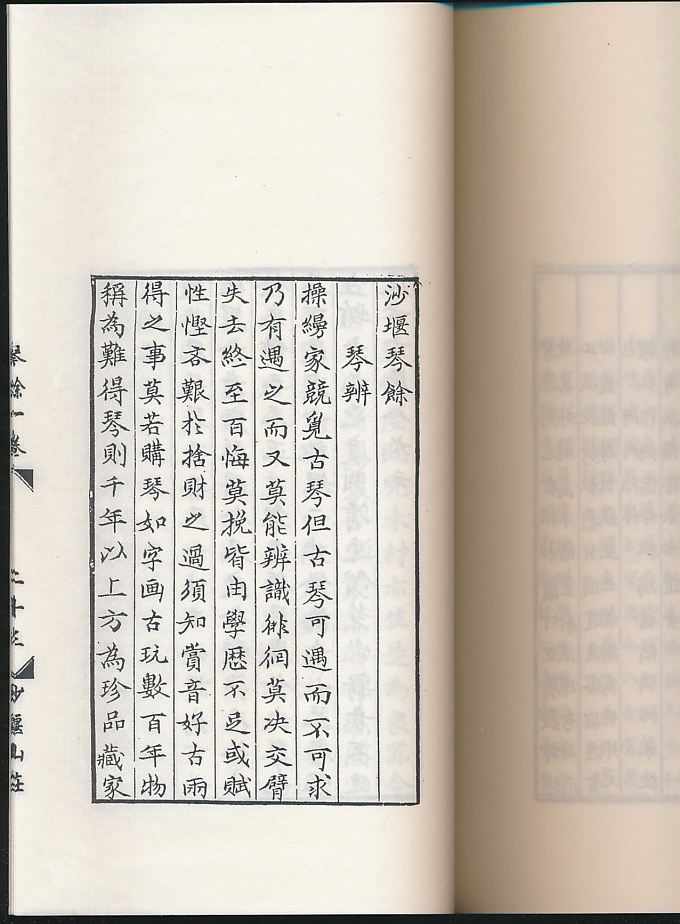 沙堰琴餘
琴辨
操縵家競覓古琴但古琴可遇而不可求
乃有遇之而又莫能辨識徘徊莫决交臂
失去終至百悔莫挽皆由學歷不足或賦
性慳吝艱於捨財之過須知賞音好古兩
得之事莫若購琴如字画古玩數百年物
稱為難得琴則千年以上方為珍品藏家
琴餘一卷
沙堰山莊